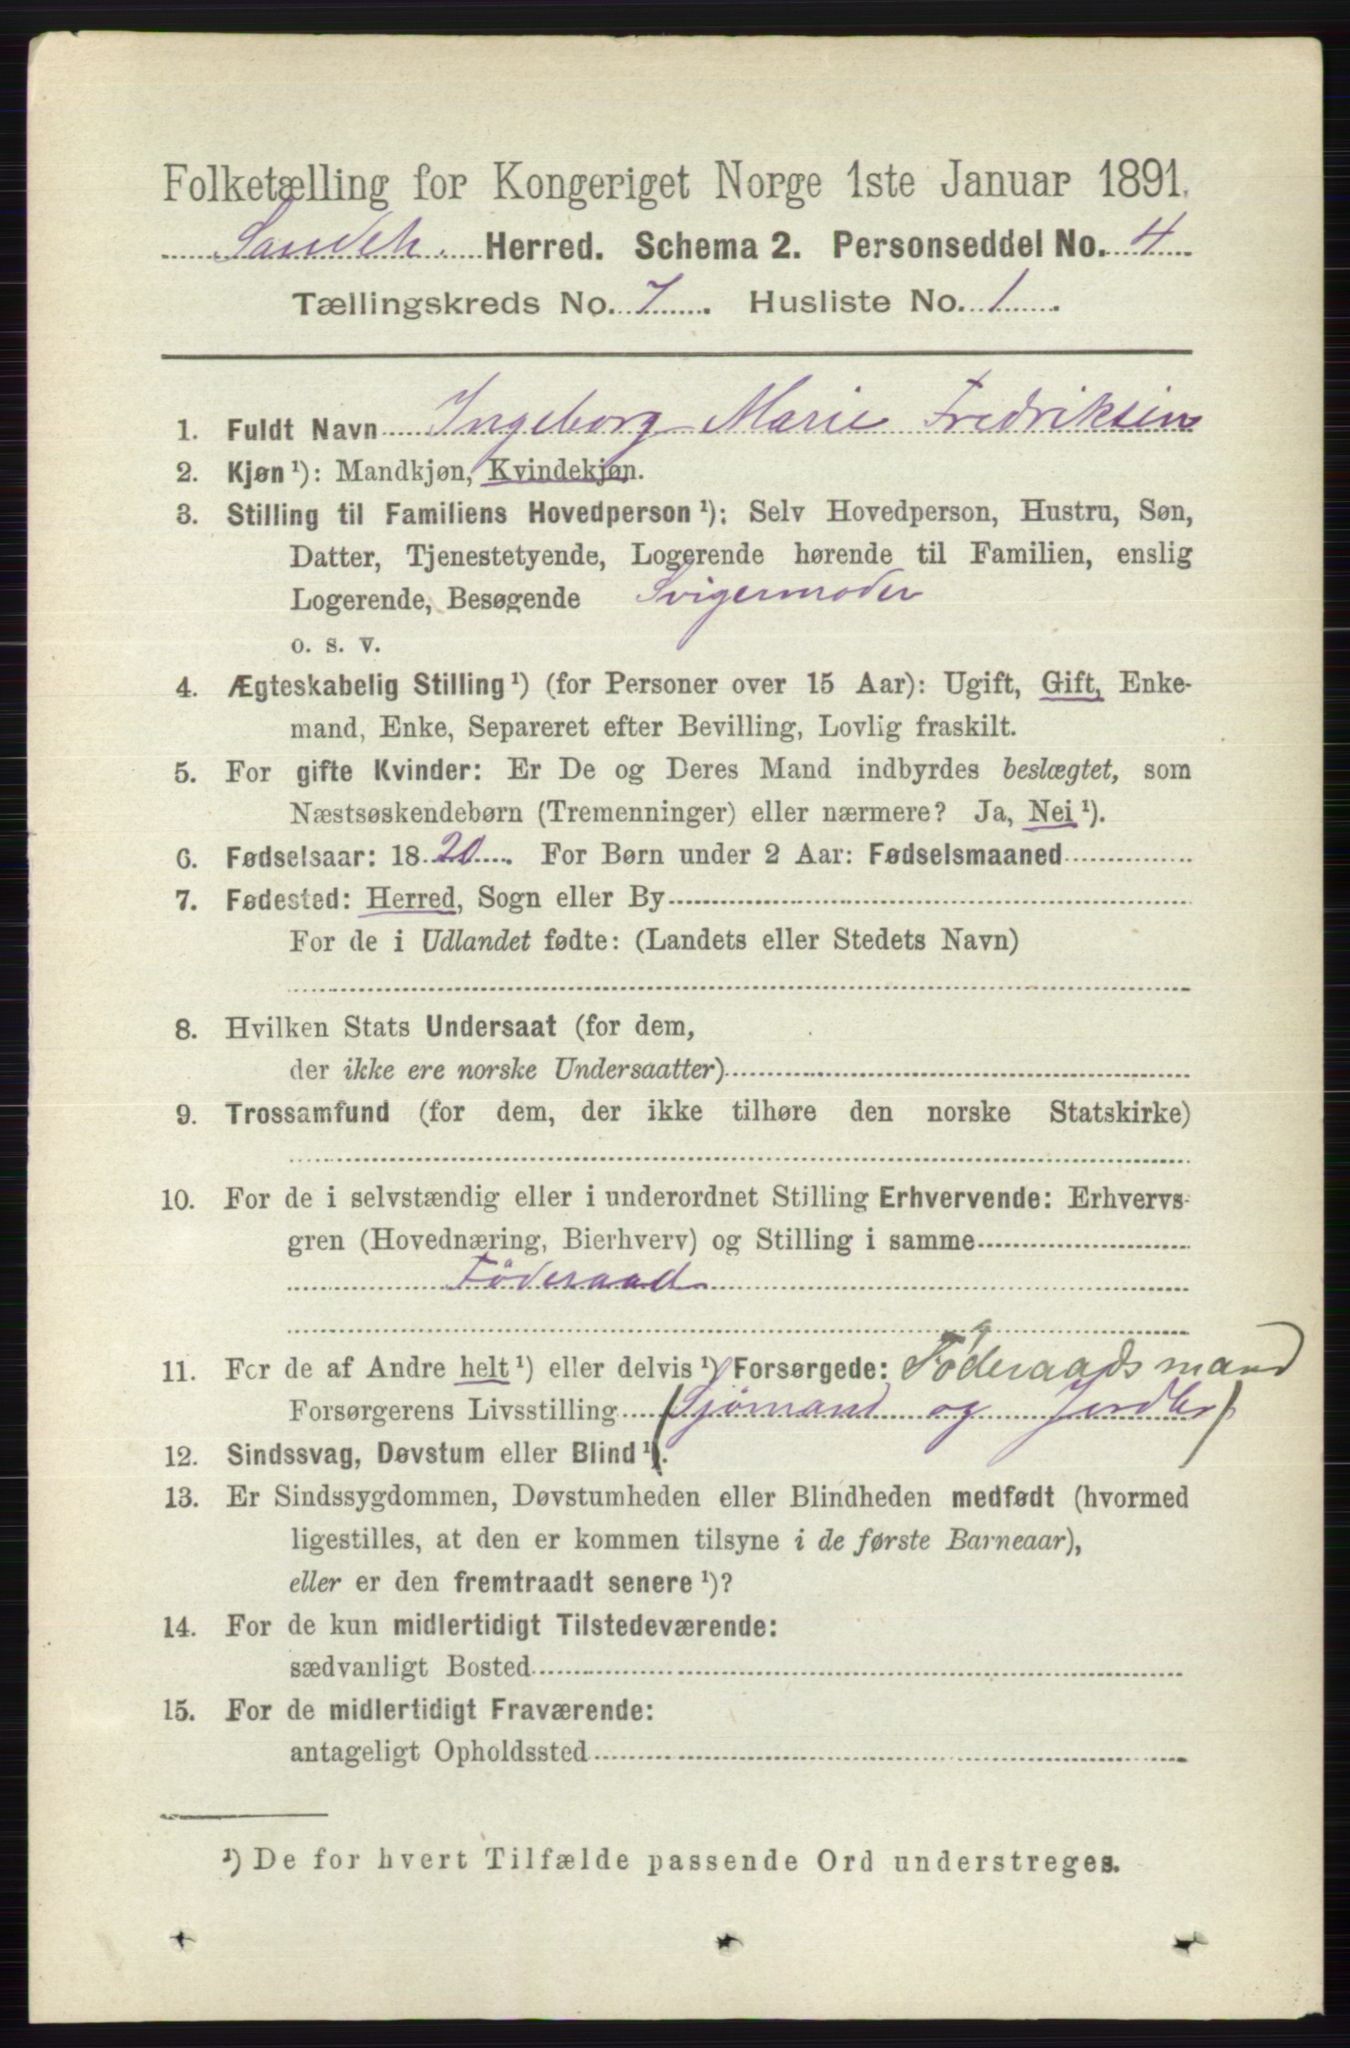 Folketælling for Kongeriget Norge 1ste Januar 1891.
Sandeh. Herred. Schema 2. Personseddel No. 4
Tællingskreds No. 7. Husliste No. 1.
1. Fuldt Navn Ingeborg Marie Fredriksen
2. Kjøn ¹): Mandkjøn, Kvindekjøn.
3. Stilling til Familiens Hovedperson ¹): Selv Hovedperson, Hustru, Søn,
Datter, Tjenestetyende, Logerende hørende til Familien, enslig
Logerende, Besøgende Svigermoder
o. s. v.
4. Ægteskabelig Stilling ¹) (for Personer over 15 Aar): Ugift, Gift, Enke-
mand, Enke, Separeret efter Bevilling, Lovlig fraskilt.
5. For gifte Kvinder: Er De og Deres Mand indbyrdes beslægtet, som
Næstsøskendebørn (Tremenninger) eller nærmere? Ja, Nei ¹).
6. Fødselsaar: 1820. For Børn under 2 Aar: Fødselsmaaned
7. Fødested: Herred, Sogn eller By
For de i Udlandet fødte: (Landets eller Stedets Navn)
8. Hvilken Stats Undersaat (for dem,
der ikke ere norske Undersaatter)
9. Trossamfund (for dem, der ikke tilhøre den norske Statskirke)
10. For de i selvstændig eller i underordnet Stilling Erhvervende: Erhvervs-
gren (Hovednæring, Bierhverv) og Stilling i samme
Föderaad
11. For de af Andre helt ¹) eller delvis ¹) Forsørgede: Föderaadsmand
Forsørgerens Livsstilling (Sjömand og Jordbr)
12. Sindssvag, Døvstum eller Blind ¹).
13. Er Sindssygdommen, Døvstumheden eller Blindheden medfødt (hvormed
ligestilles, at den er kommen tilsyne i de første Barneaar),
eller er den fremtraadt senere ¹)?
14. For de kun midlertidigt Tilstedeværende:
sædvanligt Bosted
15. For de midlertidigt Fraværende:
antageligt Opholdssted
¹) De for hvert Tilfælde passende Ord understreges.